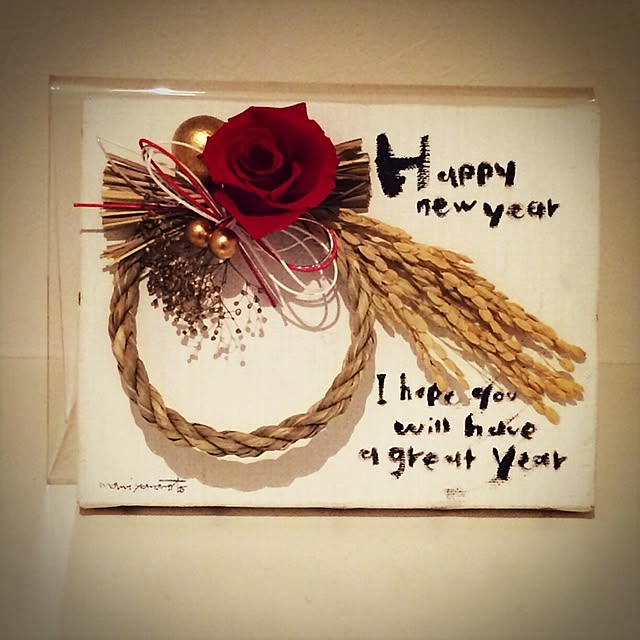 Happy
new year
I hope you
will have
a great year